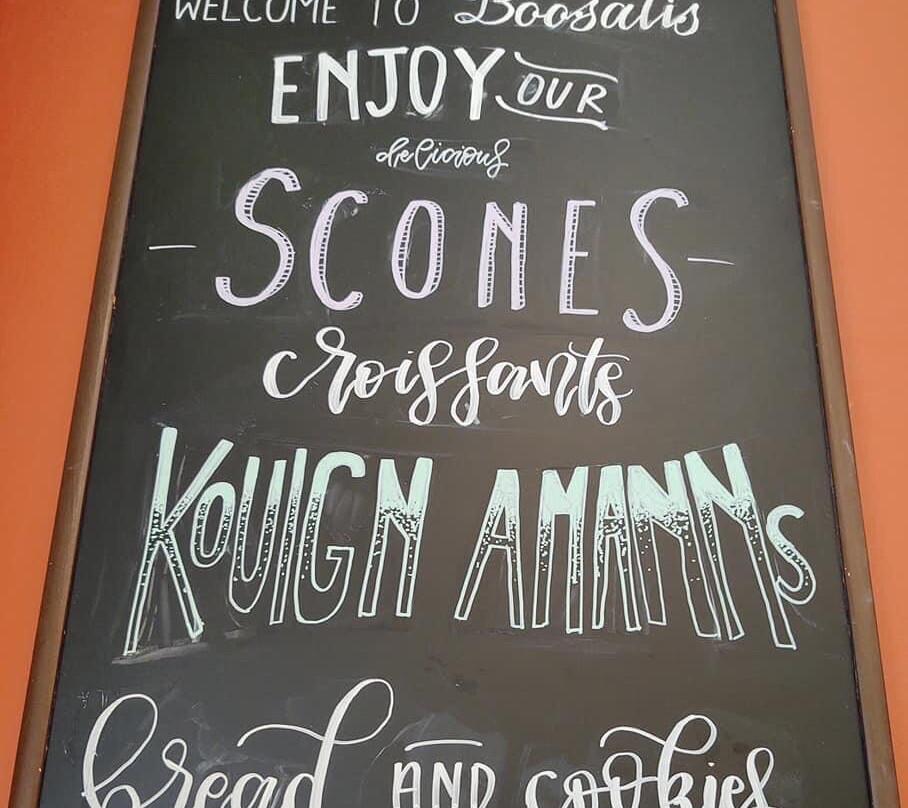 WELCOME TO Boosalis
ENJOY OUR
delicious
SCONES
croissants
KOUIGN AMANNs
bread AND cookies